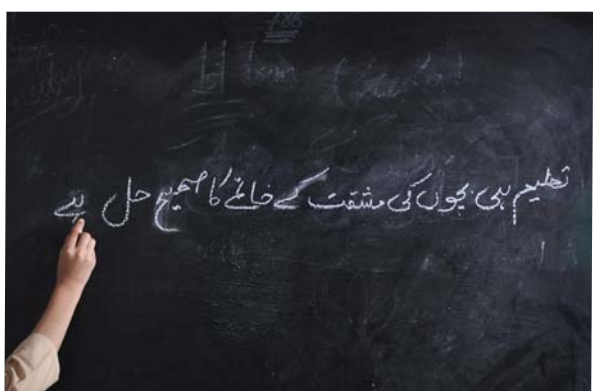 786
تعلیم ہی بچوں کی مشقت کے خاتمے کا صحیح حل ہے